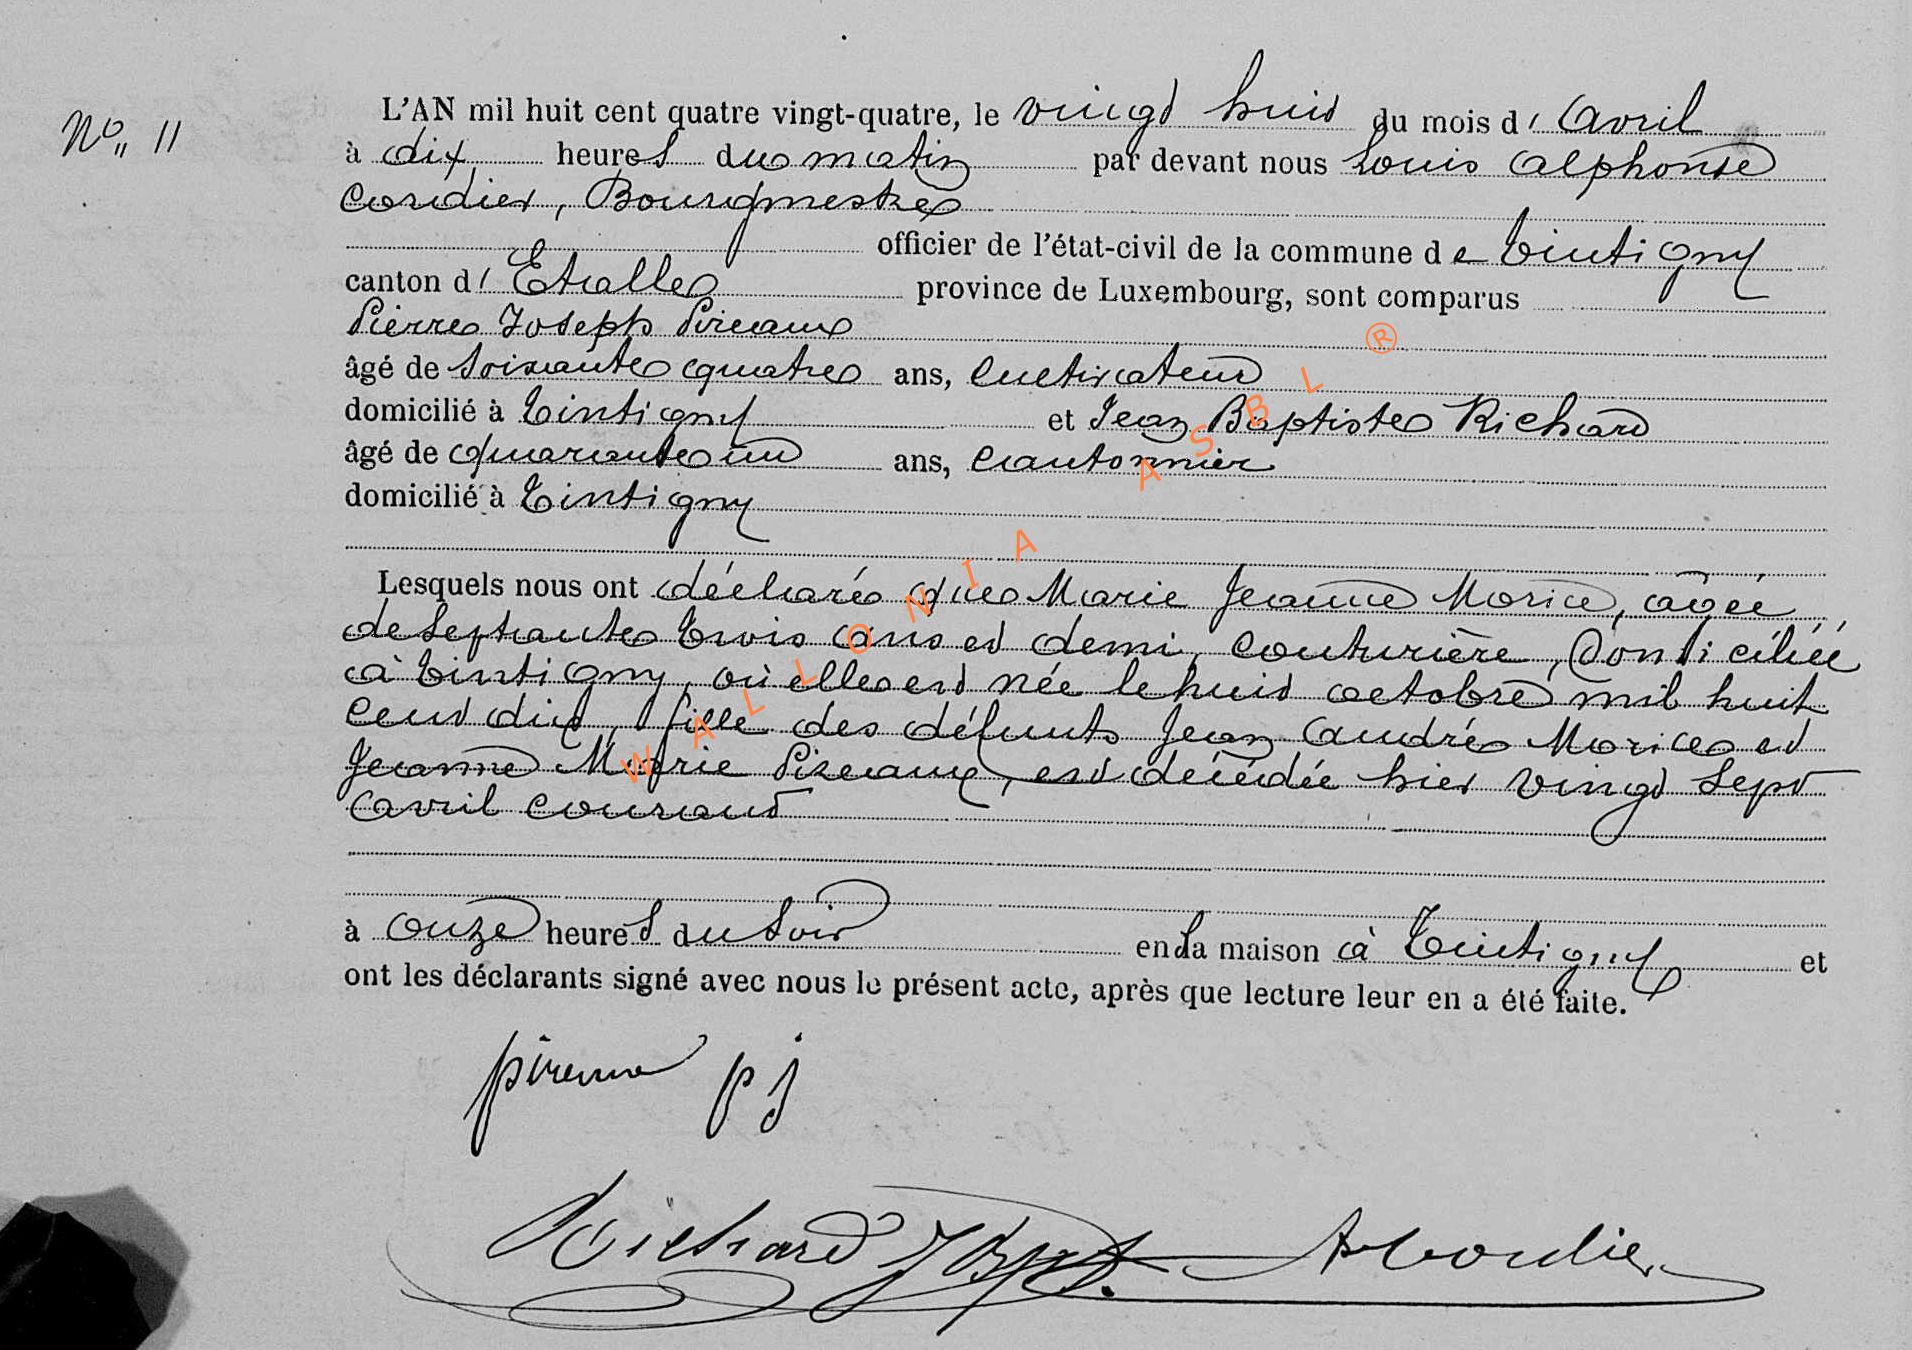 N° 11
L'AN mil huit cent quatre vingt-quatre, le vingt huit du mois d'Avril
à dix heures du matin par devant nous Louis Alphonse
Cordier, Bourgmestre
officier de l'état-civil de la commune de Tintigny
canton d'Etalle province de Luxembourg, sont comparus
Pierre Joseph Pireaux
âgé de soixante quatre ans, Cultivateur
domicilié à Tintigny et Jean Baptiste Richard
âgé de quarante un ans, Cantonnier
domicilié à Tintigny
Lesquels nous ont déclaré que Marie Jeanne Morice, agée
de septante trois ans et demi, couturière, domiciliée
à Tintigny, où elle est née le huit octobre mil huit
cent dix, fille des défunts Jean André Morice et
Jeanne Marie Pireaux, est décédée hier vingt sept
avril courant
à onze heures du soir en sa maison à Tintigny et
ont les déclarants signé avec nous le présent acte, après que lecture leur en a été faite.
pj
Richard J Bpt. A Cordier
WALLONIA ASBL ®